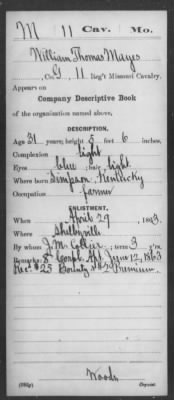 M 11 Cav. Mo.
William Thomas Mays
Co. G, 11 Reg't Missouri Cavalry.
Appears on
Company Descriptive Book
of the organization named above.
DESCRIPTION.
Age 31 years; height 5 feet 6 inches.
Complexion light
Eyes blue; hair light
Where born Simpson, Kentucky
Occupation farmer
ENLISTMENT.
When April 29, 1863.
Where Shelbyville
By whom J. M. Collier; term 3 y'rs.
Remarks: 8" Corpl. Apt June 12, 1863
Recd $25 Bounty $2 Premium.
Woods
Copyist.